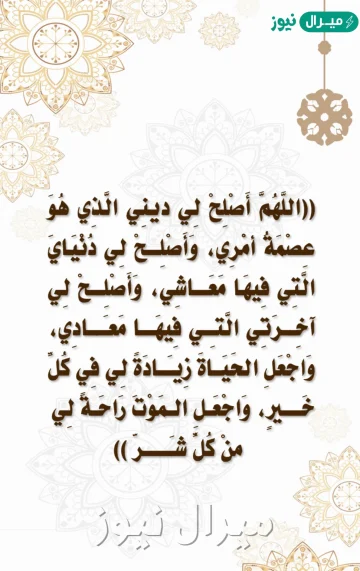 ميرال نيوز
((اللَّهُمَّ أَصْلِحْ لِي دِينِي الَّذِي هُوَ
عِصْمَةُ أَمْرِي، وَأَصْلِحْ لِي دُنْيَايَ
الَّتِي فِيهَا مَعَاشِي، وَأَصْلِحْ لِي
آخِرَتِي الَّتِي فِيهَا مَعَادِي،
وَاجْعَلِ الحَيَاةَ زِيَادَةً لِي فِي كُلِّ
خَيرٍ، وَاجْعَلِ المَوْتَ رَاحَةً لِي
مِنْ كُلِّ شَرَ))
ميرال نيوز